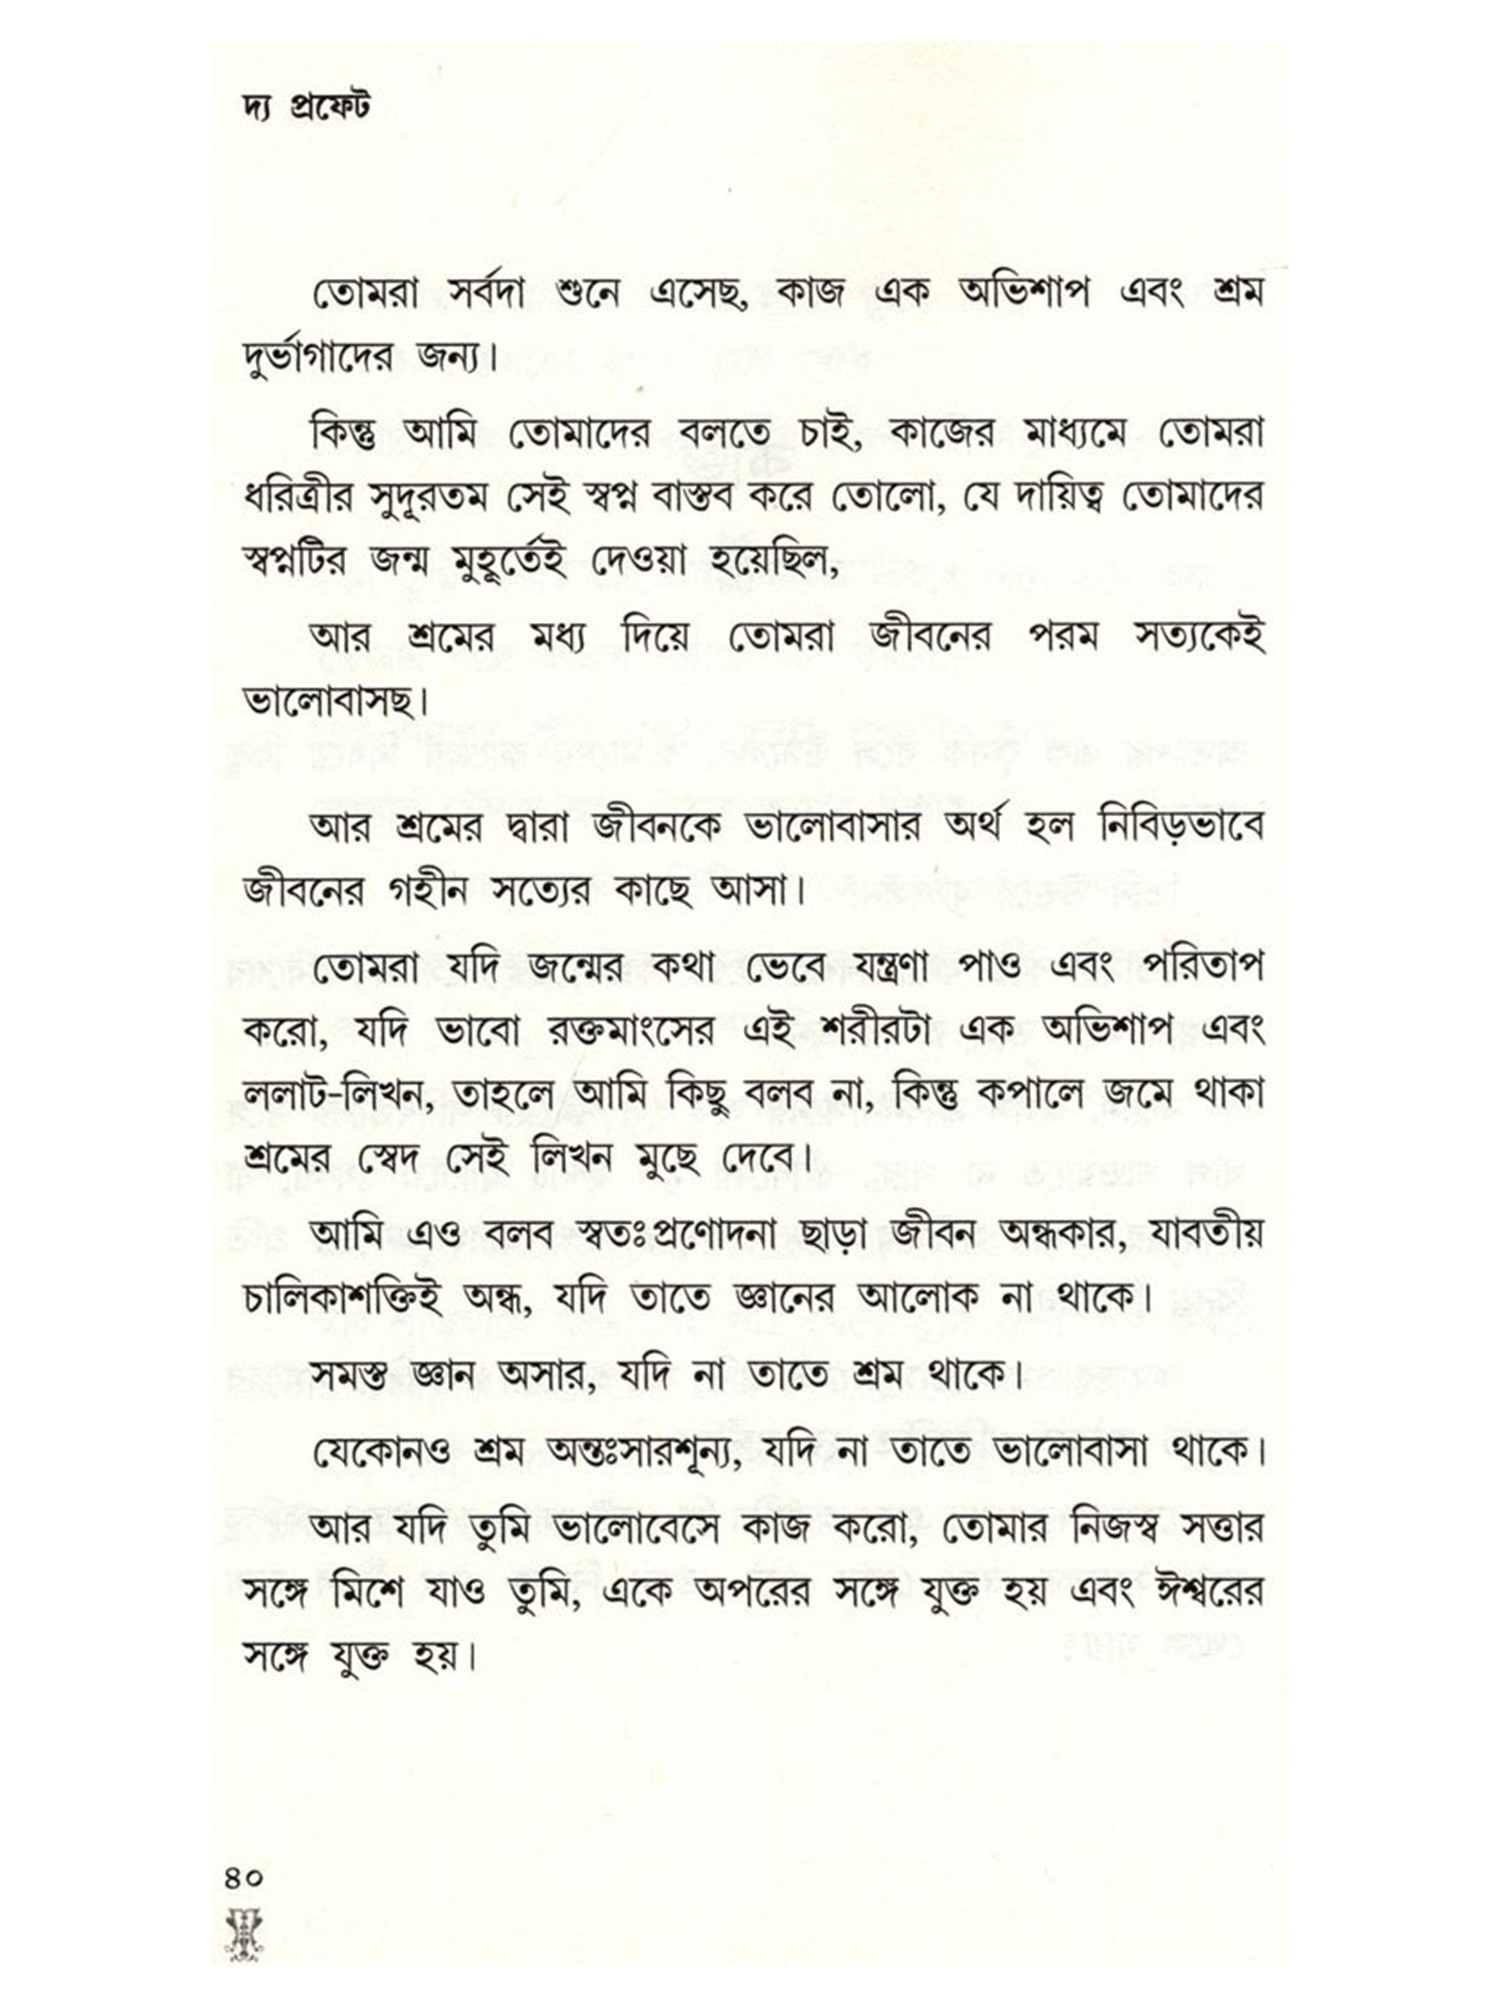 দ্য প্রফেট
তোমরা সর্বদা শুনে এসেছ, কাজ এক অভিশাপ এবং শ্রম
দুর্ভাগাদের জন্য।
কিন্তু আমি তোমাদের বলতে চাই, কাজের মাধ্যমে তোমরা
ধরিত্রীর সুদূরতম সেই স্বপ্ন বাস্তব করে তোলো, যে দায়িত্ব তোমাদের
স্বপ্নটির জন্ম মুহূর্তেই দেওয়া হয়েছিল,
আর শ্রমের মধ্য দিয়ে তোমরা জীবনের পরম সত্যকেই
ভালোবাসছ।
আর শ্রমের দ্বারা জীবনকে ভালোবাসার অর্থ হল নিবিড়ভাবে
জীবনের গহীন সত্যের কাছে আসা।
তোমরা যদি জন্মের কথা ভেবে যন্ত্রণা পাও এবং পরিতাপ
করো, যদি ভাবো রক্তমাংসের এই শরীরটা এক অভিশাপ এবং
ললাট-লিখন, তাহলে আমি কিছু বলব না, কিন্তু কপালে জমে থাকা
শ্রমের স্বেদ সেই লিখন মুছে দেবে।
আমি এও বলব স্বতঃপ্রণোদনা ছাড়া জীবন অন্ধকার, যাবতীয়
চালিকাশক্তিই অন্ধ, যদি তাতে জ্ঞানের আলোক না থাকে।
সমস্ত জ্ঞান অসার, যদি না তাতে শ্রম থাকে।
যেকোনও শ্রম অন্তঃসারশূন্য, যদি না তাতে ভালোবাসা থাকে।
আর যদি তুমি ভালোবেসে কাজ করো, তোমার নিজস্ব সত্তার
সঙ্গে মিশে যাও তুমি, একে অপরের সঙ্গে যুক্ত হয় এবং ঈশ্বরের
সঙ্গে যুক্ত হয়।
৪০